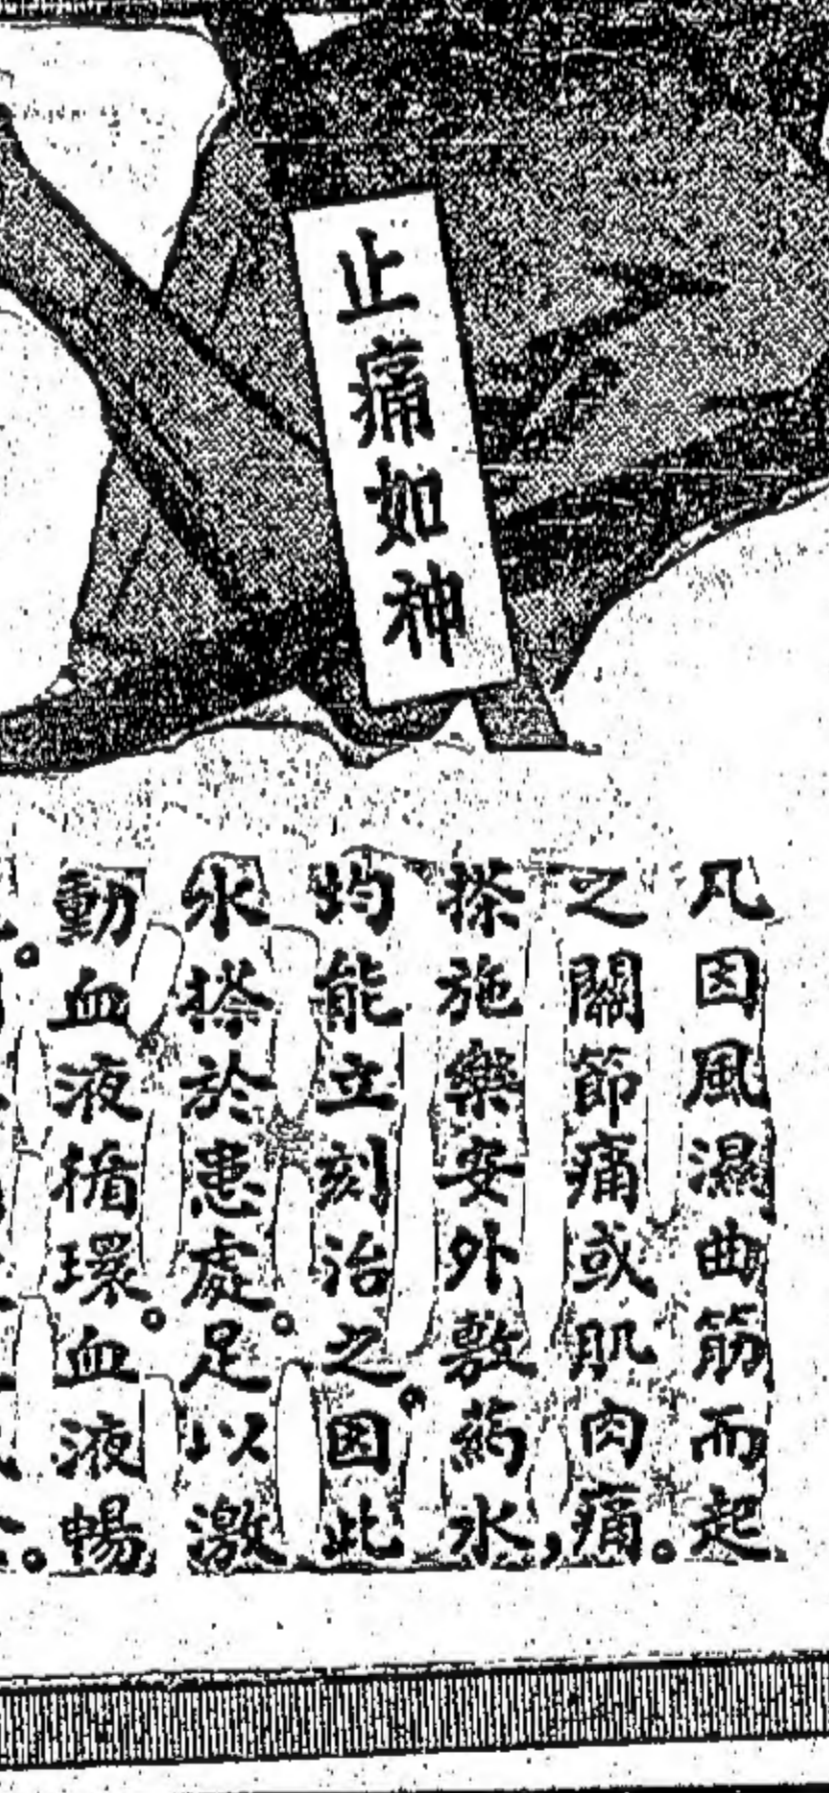 止痛如神
凡因風濕曲筋而起
之關節痛或肌肉痛。
搽施樂安外敷葯水,
均能立刻治之。因此
水搽於患處。足以激
動血液循環。血液暢